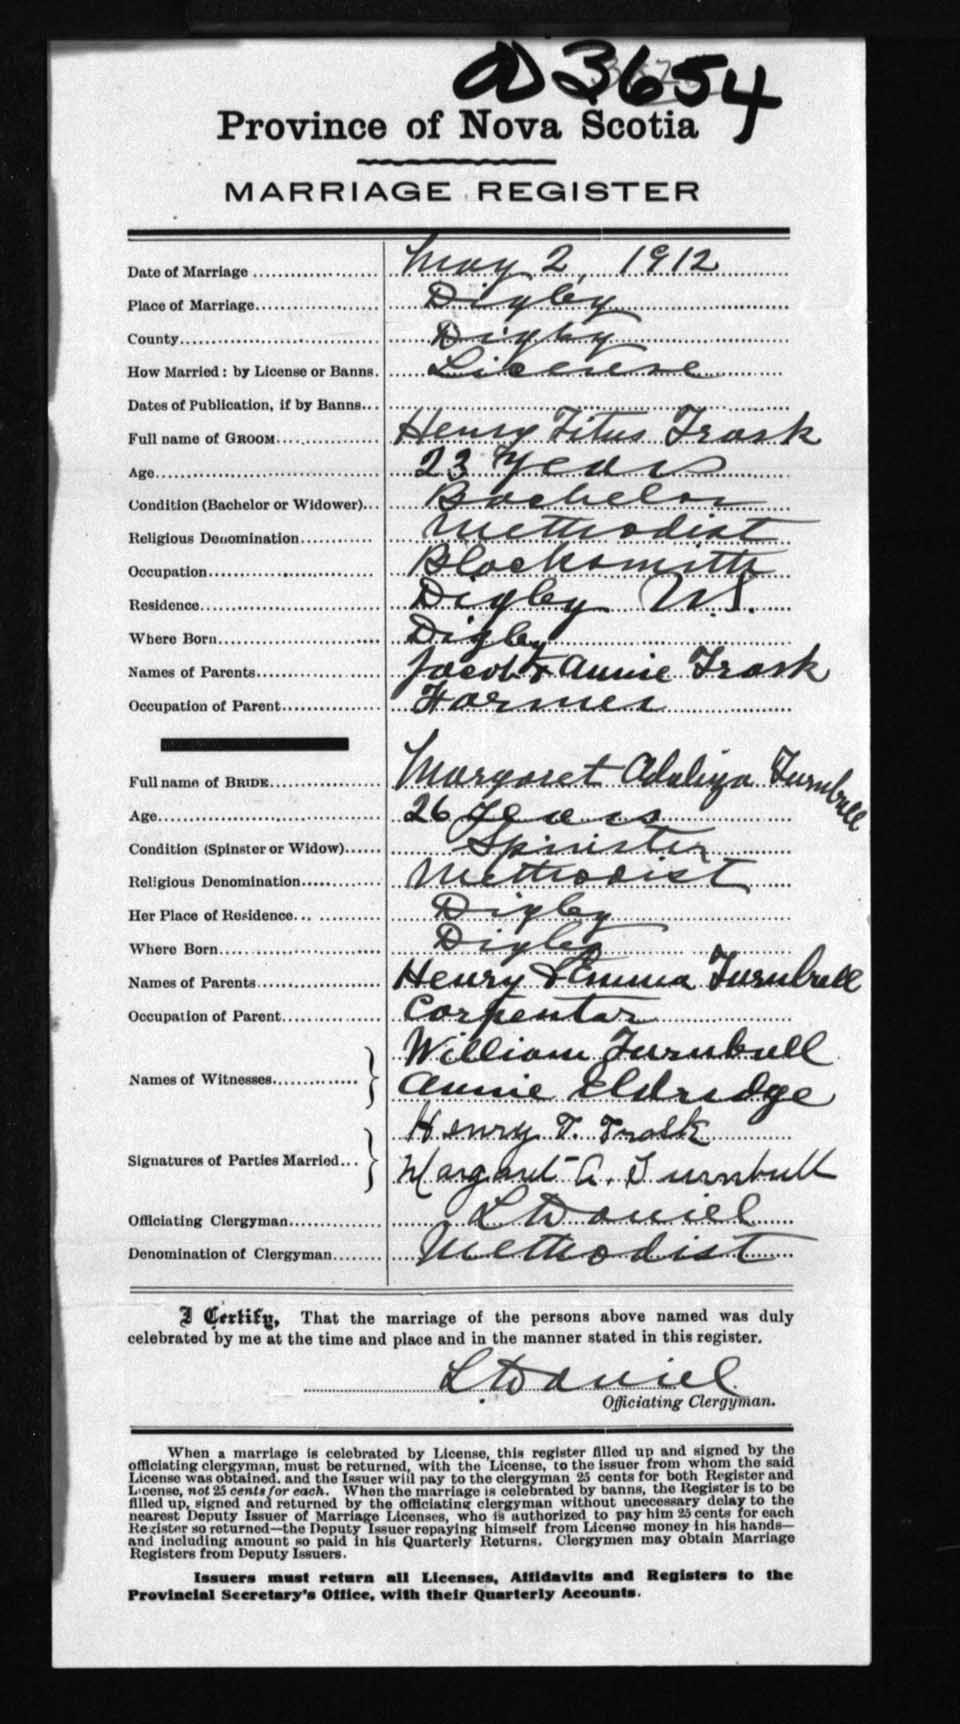 a 3654
Province of Nova Scotia
MARRIAGE REGISTER
Date of Marriage May 2, 1912
Place of Marriage Digby
County Digby
How Married: by License or Banns. License
Dates of Publication, if by Banns
Full name of GROOM Henry Titus Trask
Age 23 Years
Condition (Bachelor or Widower) Bachelor
Religious Denomination Methodist
Occupation Blacksmith
Residence Digby N.S.
Where Born Digby
Names of Parents Jacob & Annie Trask
Occupation of Parent Farmer
Full name of BRIDE Margaret Adaliza Turnbull
Age 26 Years
Condition (Spinster or Widow) Spinster
Religious Denomination Methodist
Her Place of Residence Digby
Where Born Digby
Names of Parents Henry & Emma Turnbull
Occupation of Parent Carpenter
William Turnbull
Names of Witnesses
Annie Eldridge
Henry T. Trask
Signatures of Parties Married
Margaret A. Turnbull
Officiating Clergyman L Daniel
Denomination of Clergyman Methodist
I Certify, That the marriage of the persons above named was duly
celebrated by me at the time and place and in the manner stated in this register.
L Daniel
Officiating Clergyman.
When a marriage is celebrated by License, this register filled up and signed by the
officiating clergyman, must be returned, with the License, to the issuer from whom the said
License was obtained, and the Issuer will pay to the clergyman 25 cents for both Register and
License, not 25 cents for each. When the marriage is celebrated by banns, the Register is to be
filled up, signed and returned by the officiating clergyman without unecessary delay to the
nearest Deputy Issuer of Marriage Licenses, who is authorized to pay him 25 cents for each
Register so returned—the Deputy Issuer repaying himself from License money in his hands—
and including amount so paid in his Quarterly Returns. Clergymen may obtain Marriage
Registers from Deputy Issuers.
Issuers must return all Licenses, Affidavits and Registers to the
Provincial Secretary's Office, with their Quarterly Accounts.